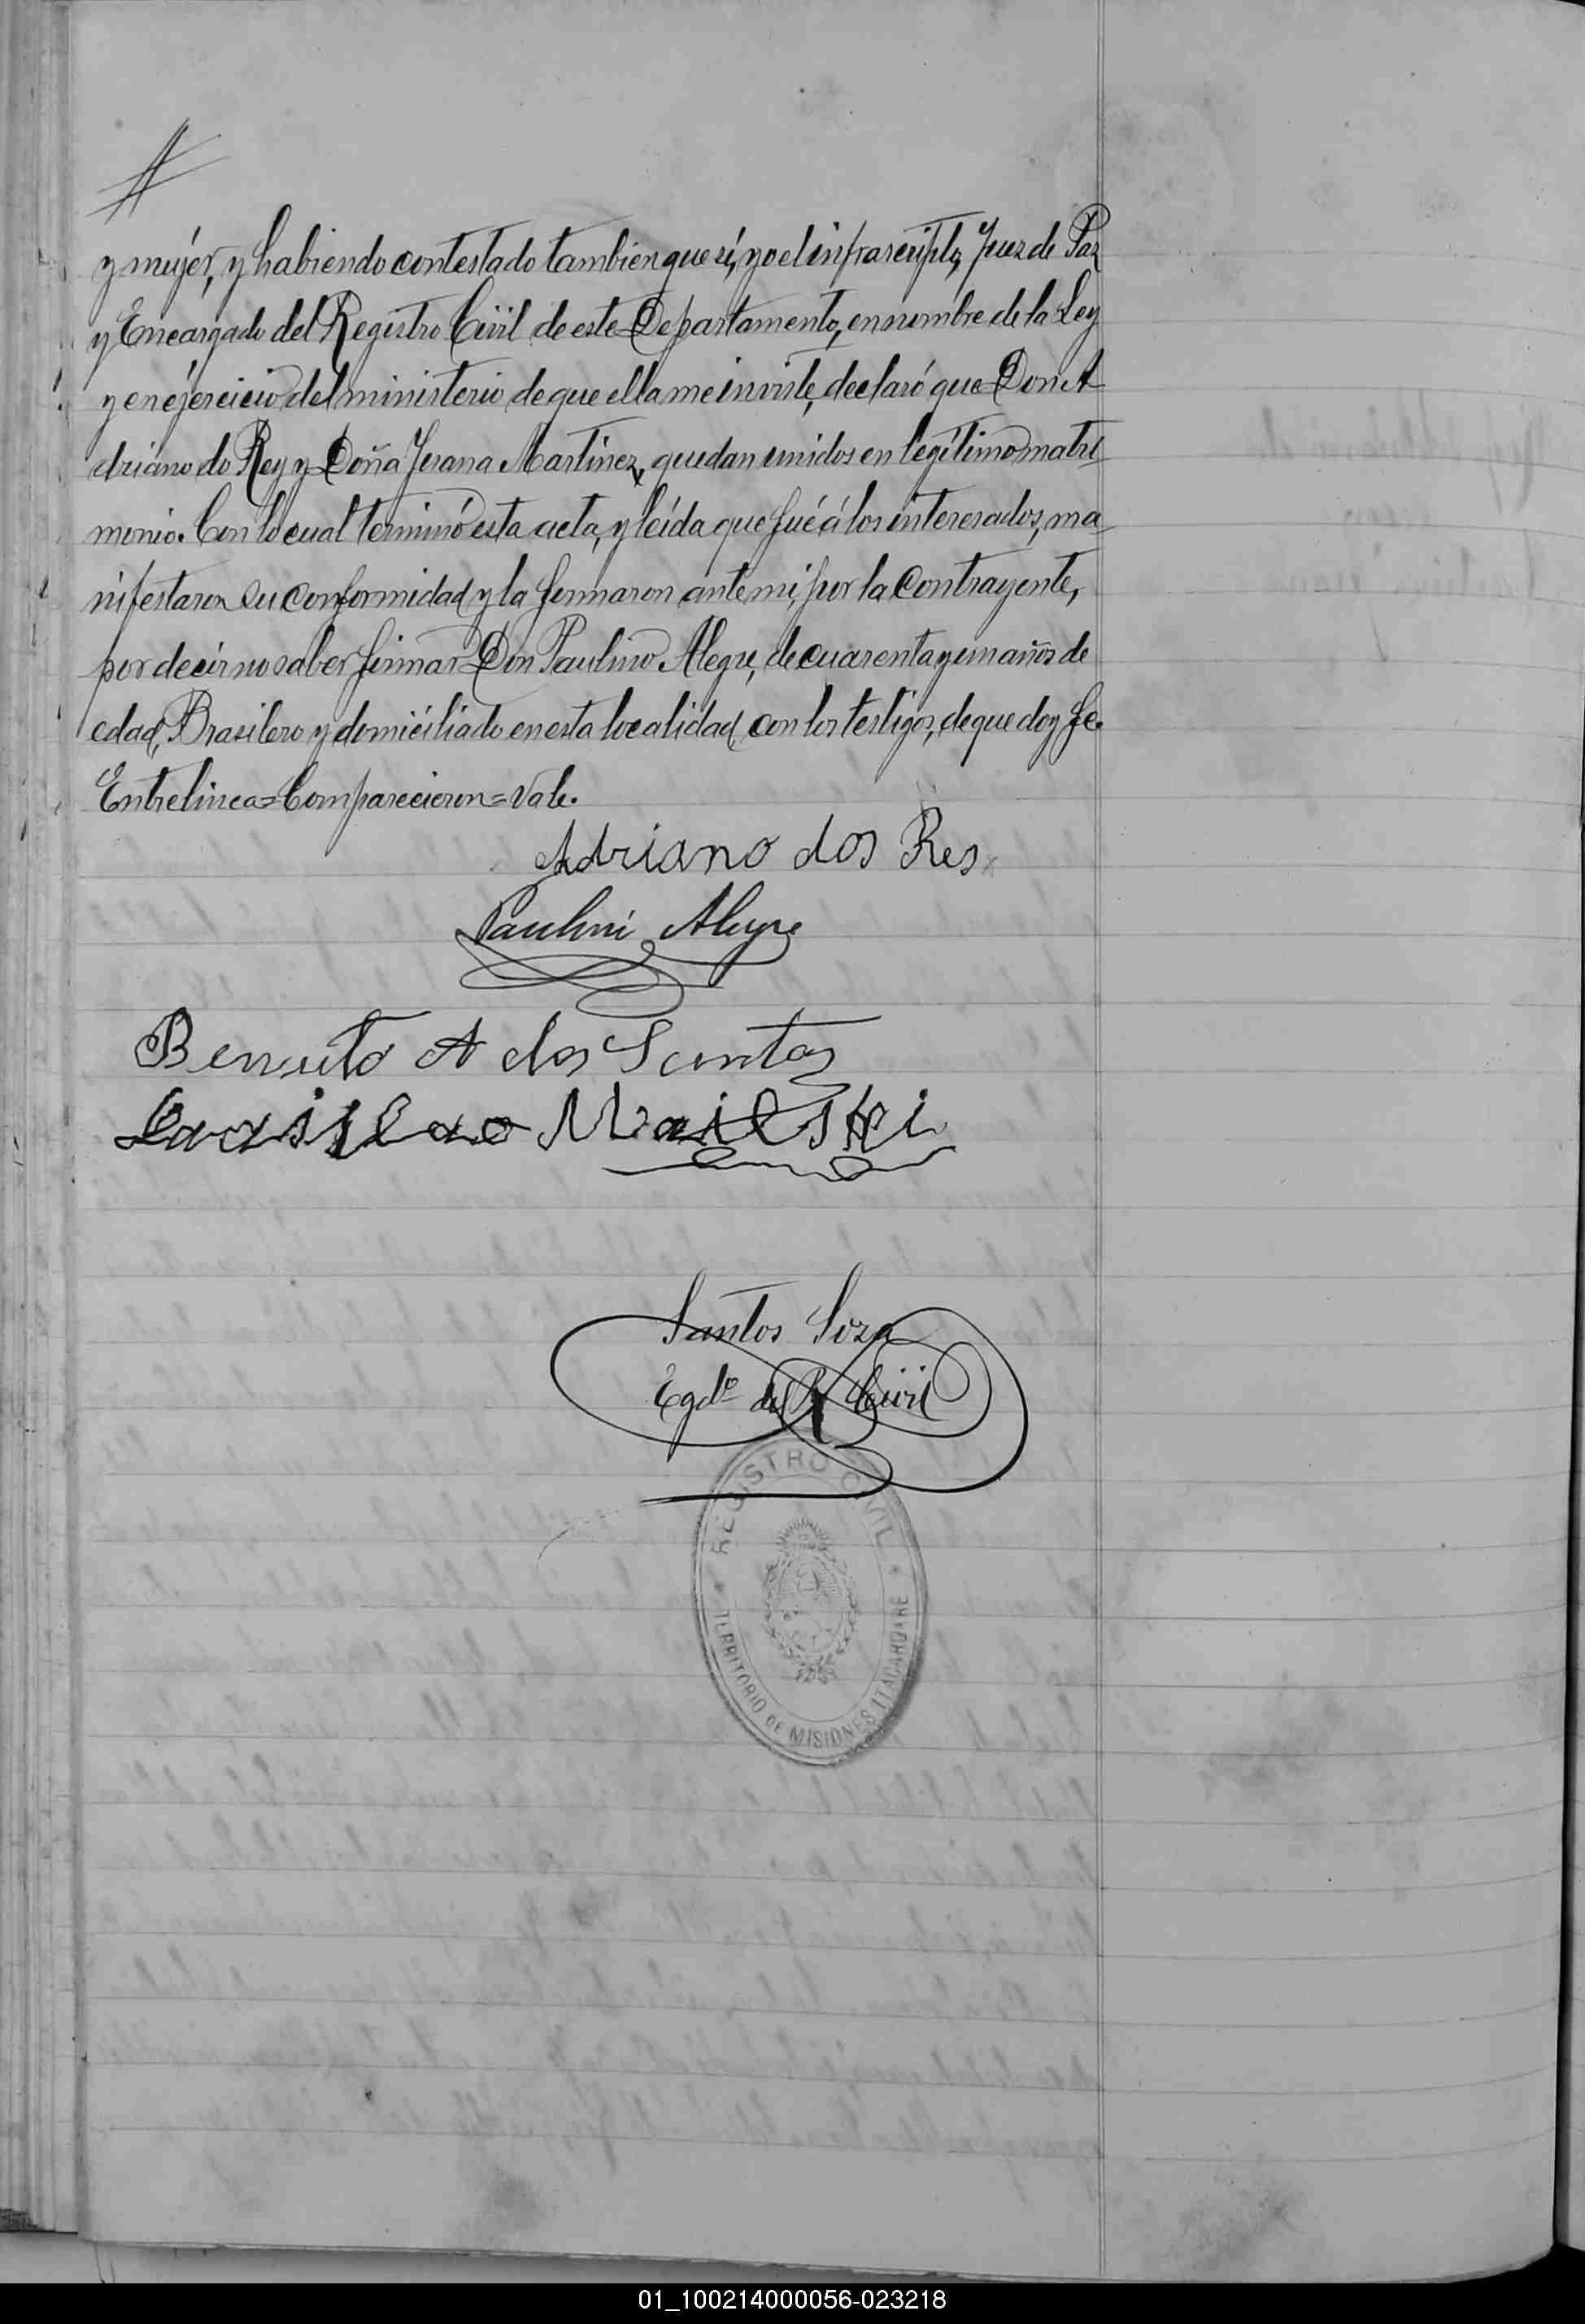 y mujér, y habiendo contestado tambien que sí, yo el infrascripto, Juez de Paz
y Encargado del Registro Civil de este Departamento, en nombre de la Ley
y en éjercicio del ministerio de que ella me inviste, declaró que Don A
driano do Rey y Doña Juana Martinez, quedan unidos en legítimo matri-
monio. Con lo cual terminó esta acta, y leída que fué á los interesados, ma-
nifestaron su conformidad y la firmaron ante mi, por la contrayente,
por decir no saber firmar Don Paulino Alegre, de cuarenta y un años de
edad, Brasilero y domiciliado en esta localidad, con los testigos, de que doy fe.
Entrelinea=Comparecieron=Vale.
Adriano dos Res
Paulino Alegre
A dos Santos
Santos Soza
Egdo del R Civil
REGISTRO CIVIL
TERRITORIO DE MISIONES ITACARUARE
01_100214000056-023218